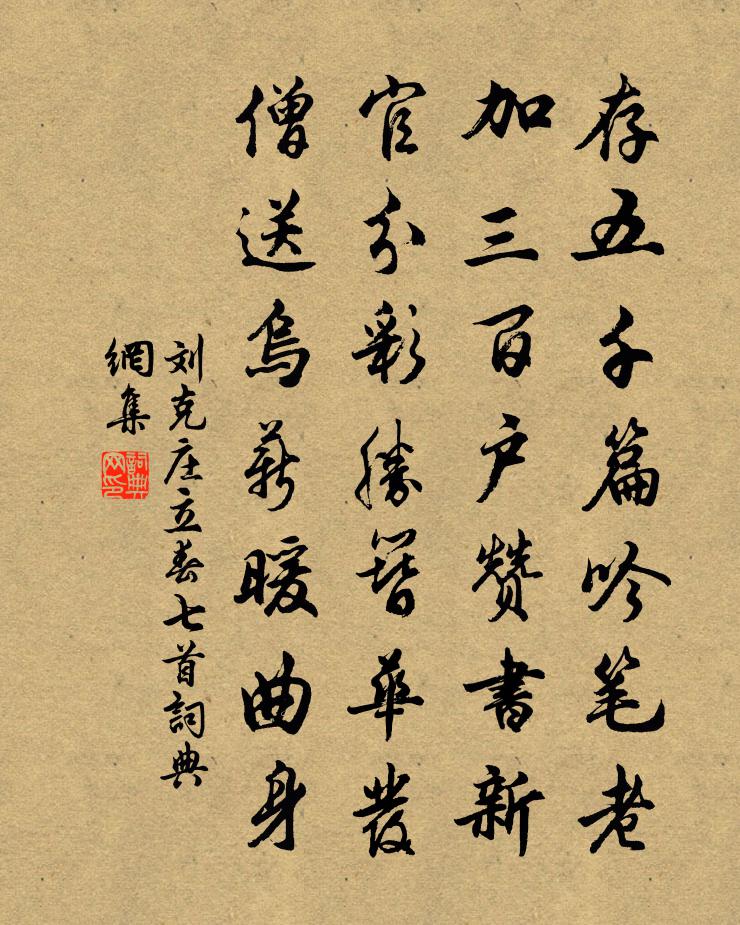 存五千篇吟笔老
加三百户赞書新
官分彩勝簪華發
僧送烏薪暖曲身
刘克庄立春七首詞典
網集
詞典網印